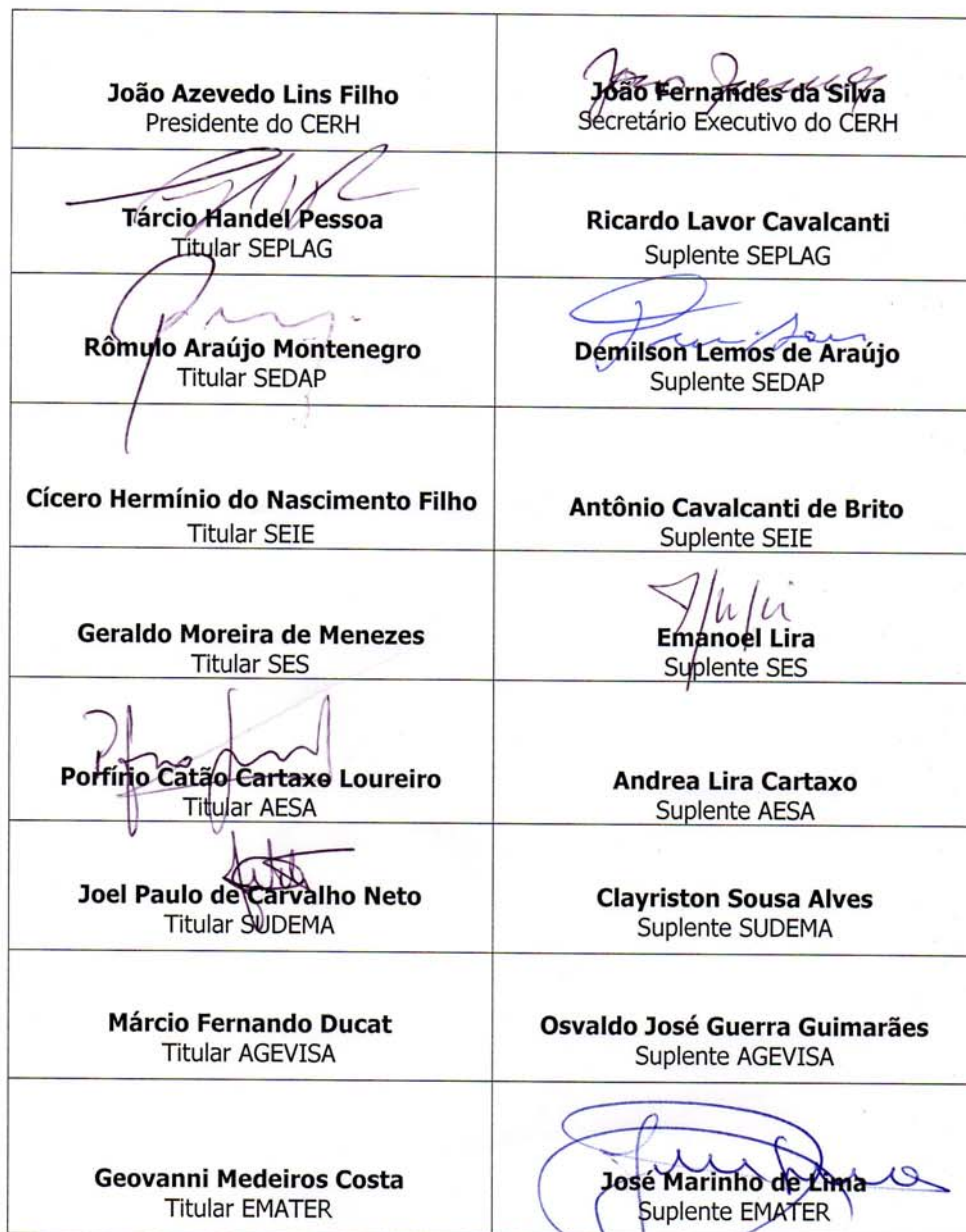 João Azevedo Lins Filho
Presidente do CERH
João Fernandes da Silva
Secretário Executivo do CERH
Tárcio Handel Pessoa
Titular SEPLAG
Ricardo Lavor Cavalcanti
Suplente SEPLAG
Rômulo Araújo Montenegro
Titular SEDAP
Demilson Lemos de Araújo
Suplente SEDAP
Cícero Hermínio do Nascimento Filho
Titular SEIE
Antônio Cavalcanti de Brito
Suplente SEIE
Geraldo Moreira de Menezes
Titular SES
Emanoel Lira
Suplente SES
Porfírio Catão Cartaxo Loureiro
Titular AESA
Andrea Lira Cartaxo
Suplente AESA
Joel Paulo de Carvalho Neto
Titular SUDEMA
Clayriston Sousa Alves
Suplente SUDEMA
Márcio Fernando Ducat
Titular AGEVISA
Osvaldo José Guerra Guimarães
Suplente AGEVISA
Geovanni Medeiros Costa
Titular EMATER
José Marinho de Lima
Suplente EMATER